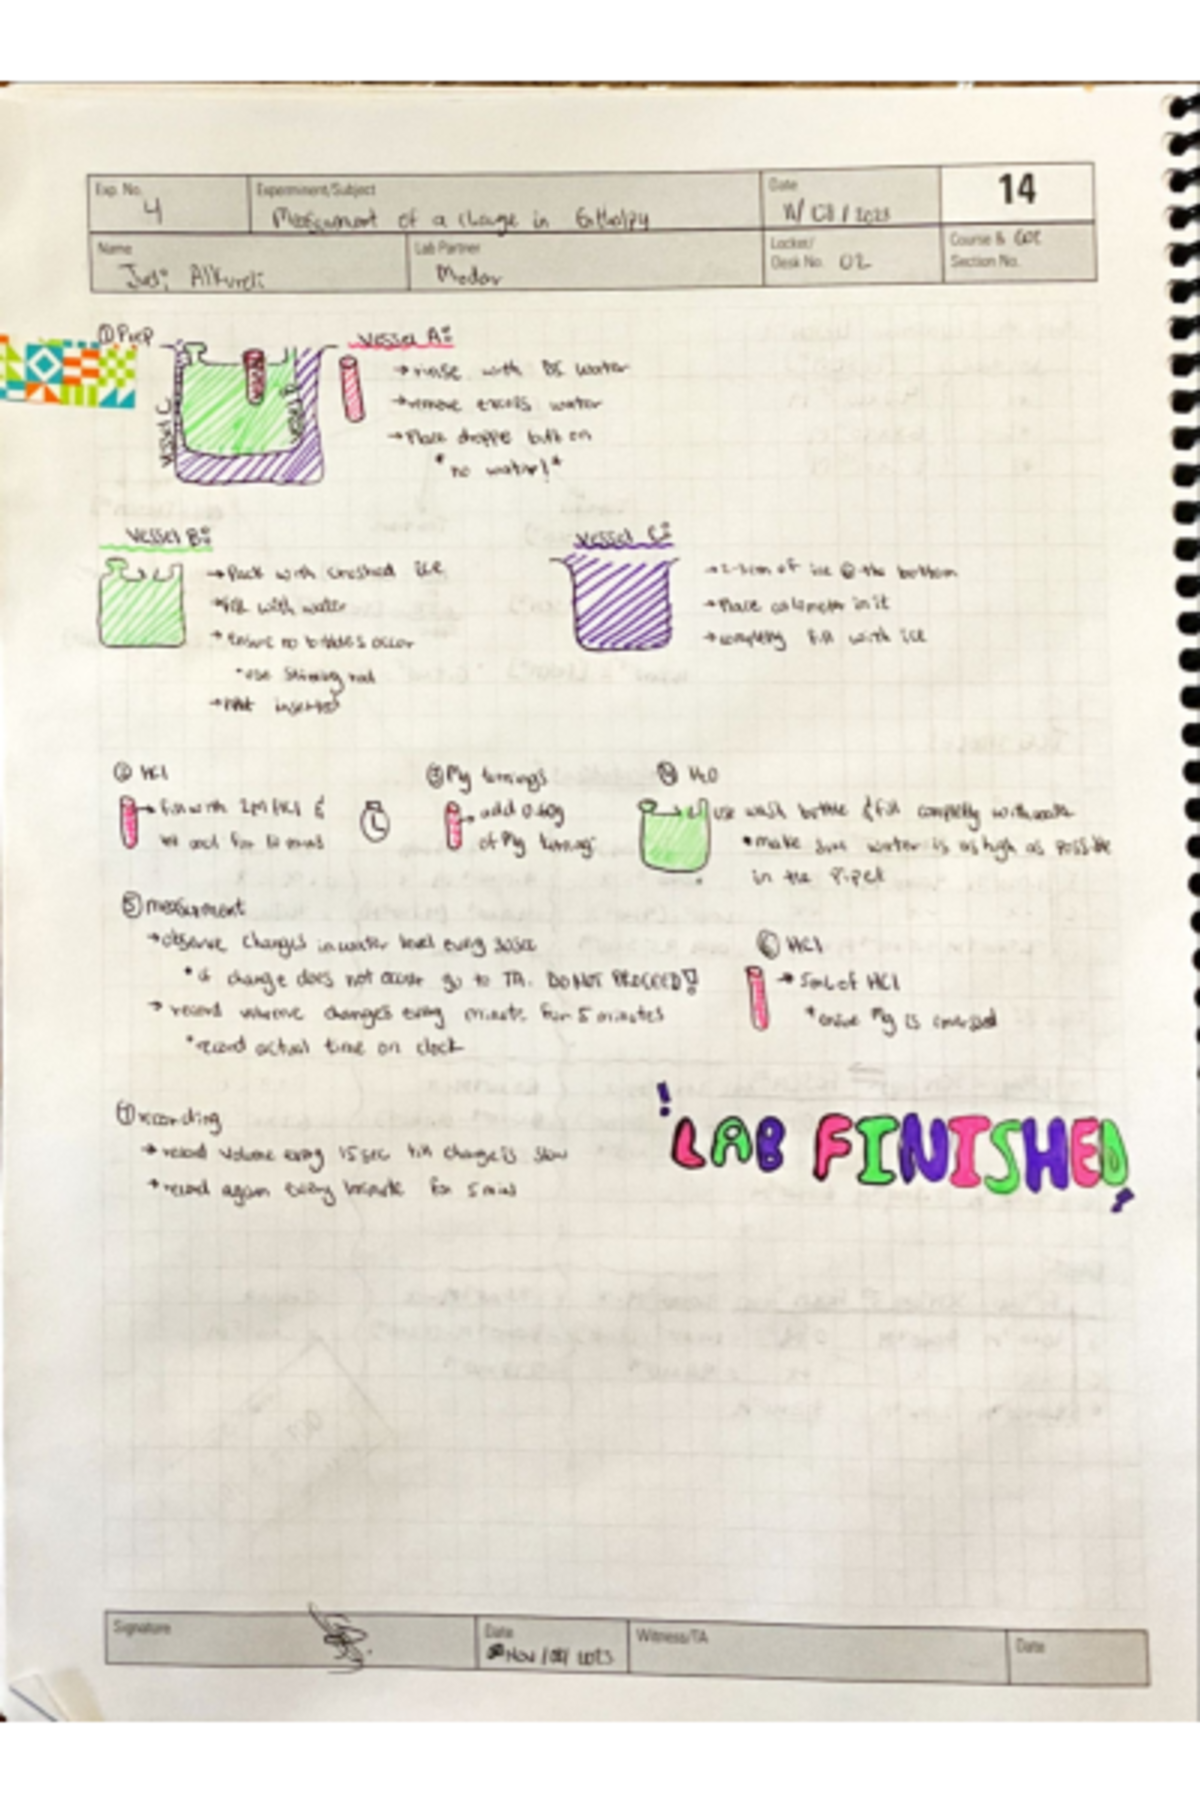 Exp. No. 4
Experiment/Subject Measurment of a change in Enthalpy
Date 11/08/2023
14
Name Judi Alkurdi
Lab Partner
Locker/ Desk No. 02
Course & Section No.
① Prep
Vessel C
Vessel B
Vessel A:
→ rinse with DI water
→ remove excess water
→ Place dropper bulb on
* no water! *
Vessel B:
→ Pack with crushed ice
→ Fill with water
→ ensure no bubbles occur
• use stirring rod
→ inserted
Vessel C:
→ 2-3cm of ice @ the bottom
→ Place calometer in it
→ completly fill with ice
② HCl
→ fill with 2M HCl &
wait for 10 mins
③ Mg turnings
→ add 0.60g
of Mg turnings
④ H2O
use wash bottle & fill completly with water
• make sure water is as high as possible
in the Pipet
⑤ measurment
→ observe changes in water level every 30sec
• if change does not occur go to TA. DO NOT PROCEED!
→ record volume changes every minute for 5 minutes
• record actual time on clock
⑥ HCl
→ 5mL of HCl
• ensure Mg is immersed
⑦ recording
→ record volume every 15sec till change is slow
→ record again every minute for 5 mins
! LAB FINISHED !
Signature
Date Nov/08/2023
Witness/TA
Date